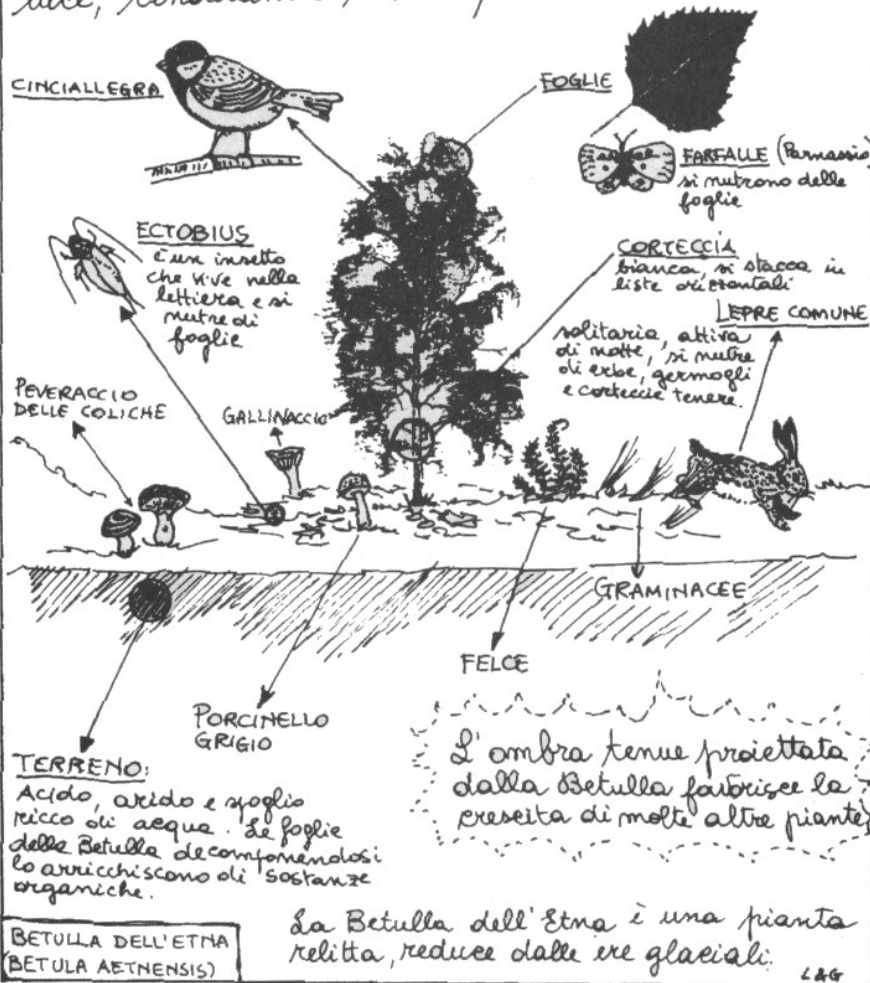 CINCIALLEGRA
FOGLIE
FARFALLE (Parnassio)
si nutrono delle
foglie
ECTOBIUS
è un insetto
che vive nella
lettiera e si
nutre di
foglie
CORTECCIA
bianca, si stacca in
liste orizzontali
LEPRE COMUNE
solitaria, attiva
di notte, si nutre
di erbe, germogli
e cortecce tenere.
PEVERACCIO
DELLE COLICHE
GALLINACCIO
GRAMINACEE
FELCE
PORCINELLO
GRIGIO
TERRENO:
Acido, arido e spoglio
ricco di acqua. Le foglie
della Betulla decomponendosi
lo arricchiscono di sostanze
organiche.
L'ombra tenue proiettata
dalla Betulla favorisce la
crescita di molte altre piante
BETULLA DELL'ETNA
(BETULA AETNENSIS)
La Betulla dell'Etna è una pianta
relitta, reduce dalle ere glaciali.
L&G